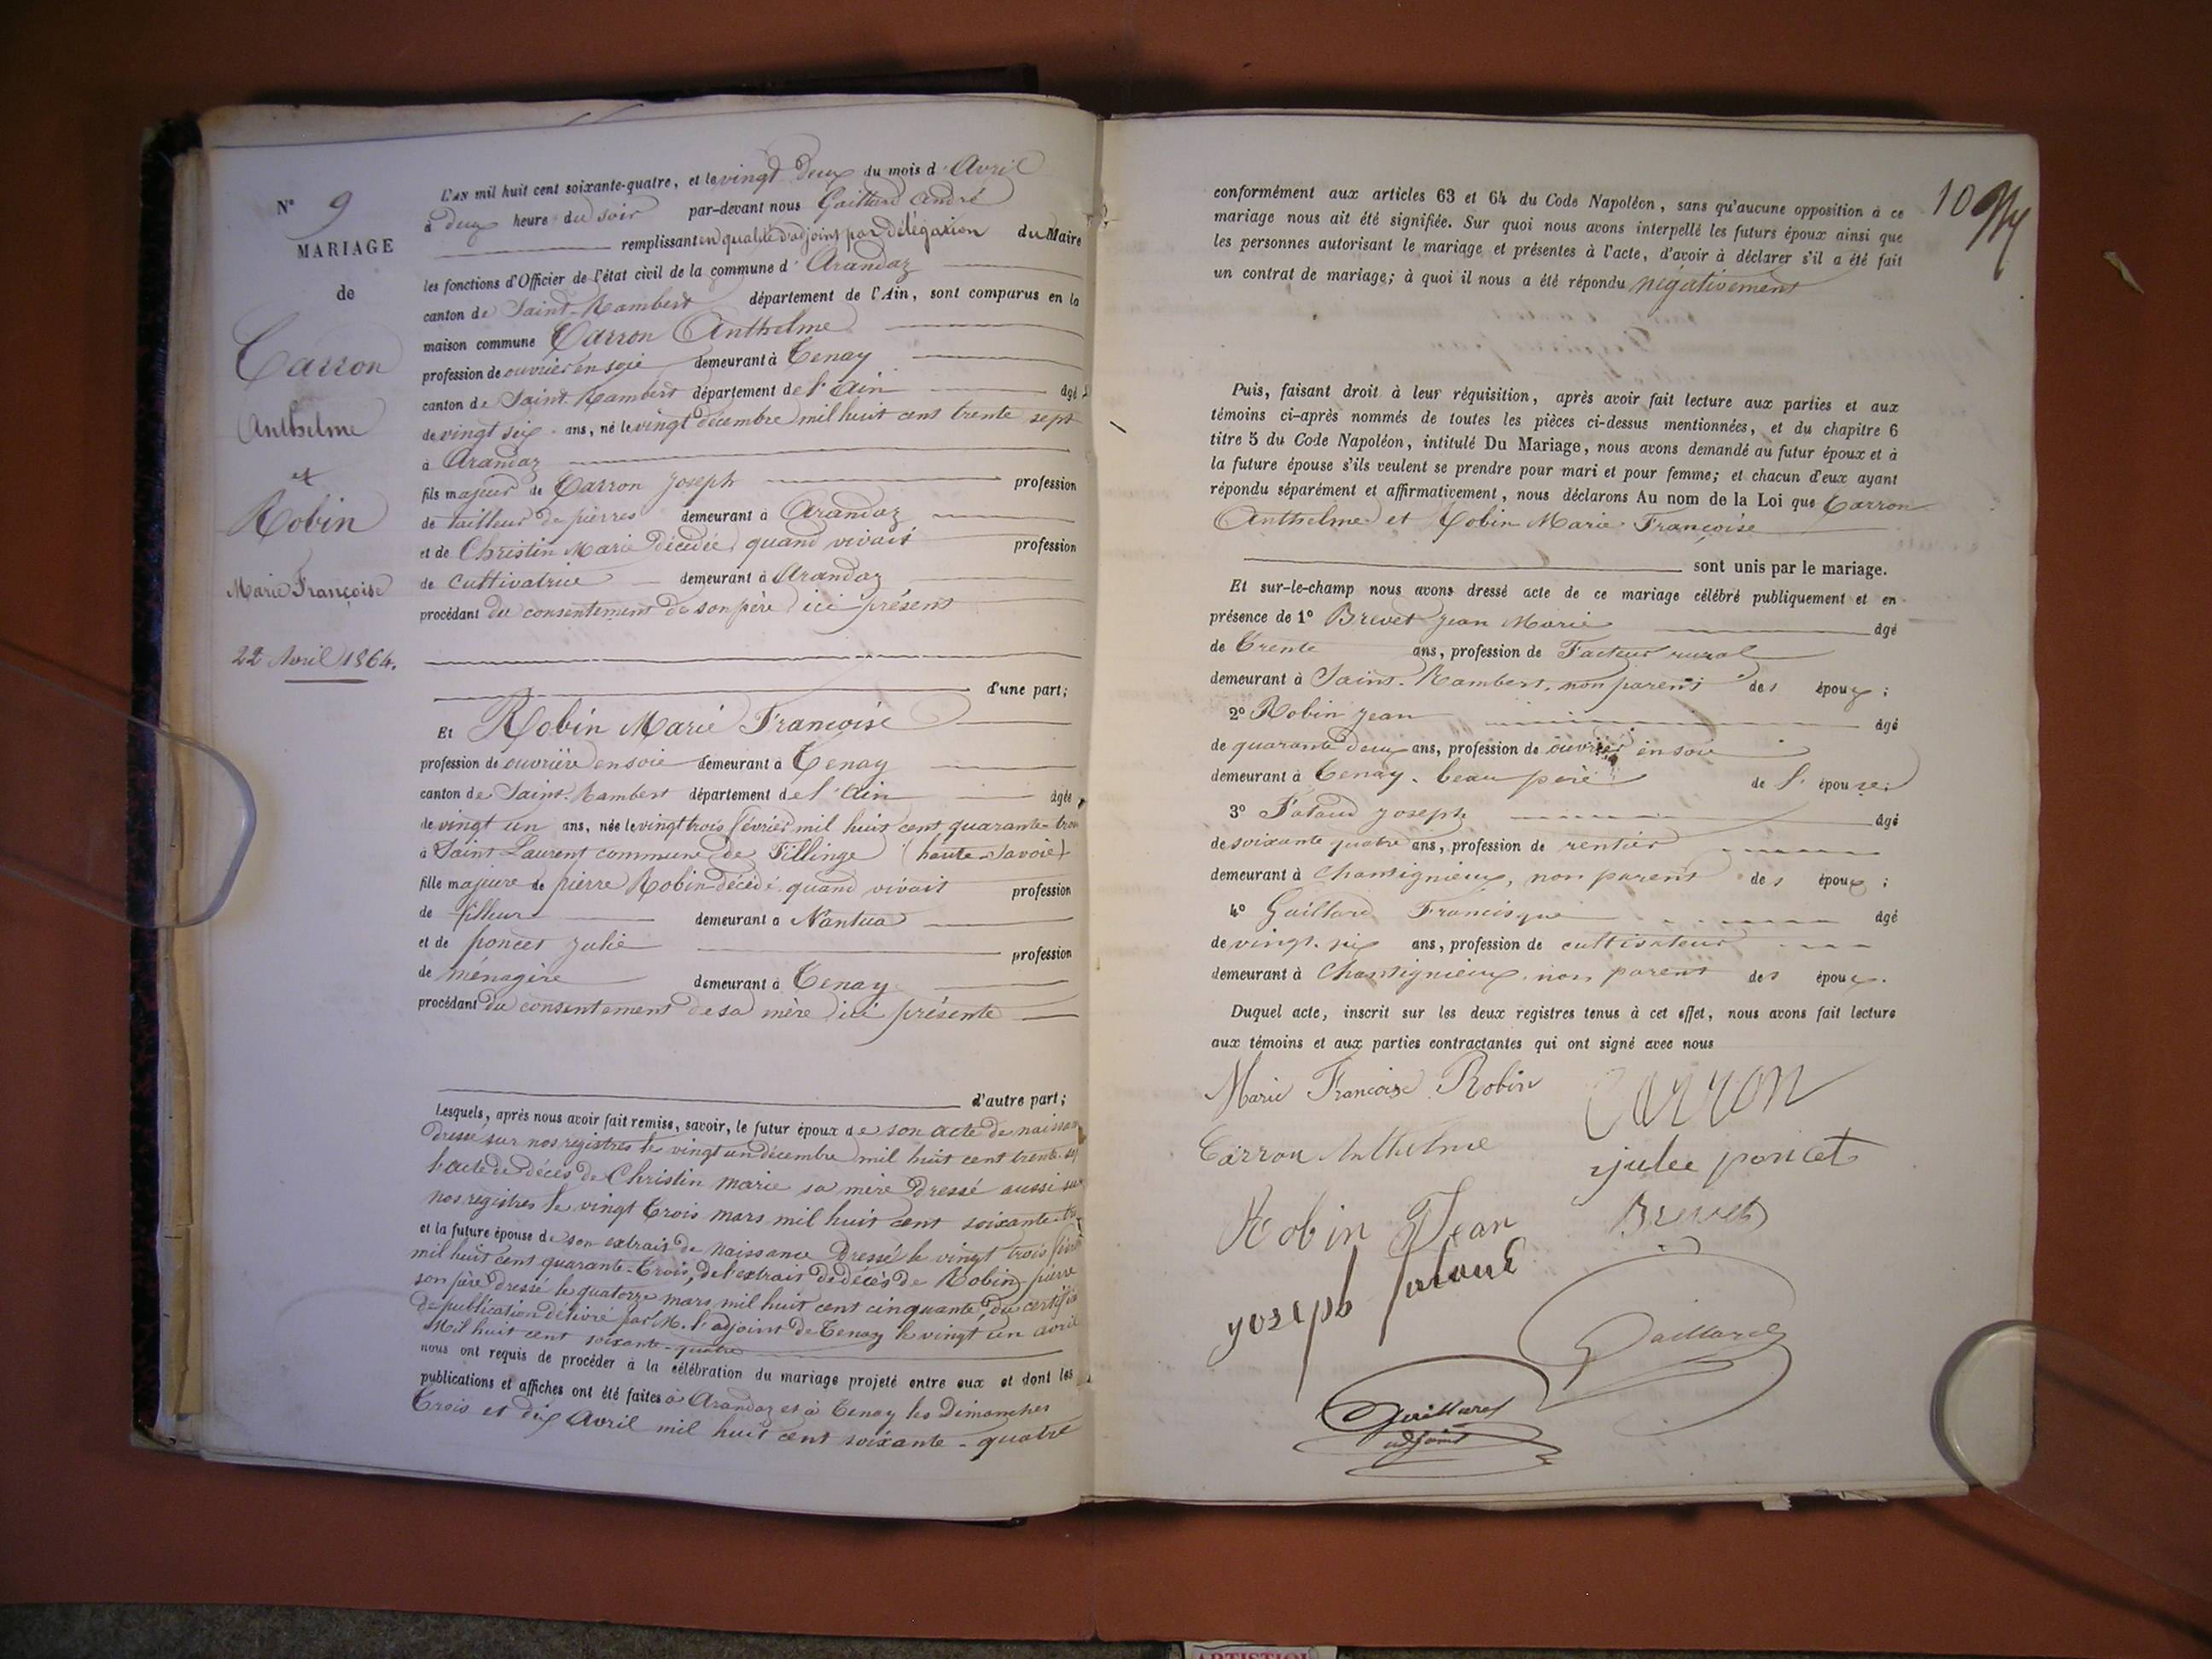 N° 9
MARIAGE
de
Carron
Anthelme
et
Robin
Marie Françoise
22 Avril 1864.
L'AN mil huit cent soixante-quatre, et le vingt deux du mois d'Avril
à deux heure du soir par-devant nous Gaillard André
remplissant en qualité d'adjoint par délégation du Maire
les fonctions d'Officier de l'état civil de la commune d'Arandaz
canton de Saint-Rambert département de l'Ain, sont comparus en la
maison commune Carron Anthelme
profession de ouvrier en soie demeurant à Tenay
canton de Saint-Rambert département de l'Ain âgé
de vingt six ans, né le vingt décembre mil huit cent trente sept
à Arandaz
fils majeur de Carron Joseph profession
de tailleur de pierres demeurant à Arandaz
et de Christin Marie décédée, quand vivait profession
de cultivatrice demeurant à Arandaz
procédant du consentement de son père ici présent
d'une part;
Et Robin Marie Françoise
profession de ouvrière en soie demeurant à Tenay
canton de Saint-Rambert département de l'Ain âgée
de vingt un ans, née le vingt trois février mil huit cent quarante-trois
à Saint Laurent commune de Fillinge (haute-Savoie)
fille majeure de pierre Robin décédé quand vivait profession
de filleur demeurant à Nantua
et de poncet Julie profession
de ménagère demeurant à Tenay
procédant du consentement de sa mère ici présente
d'autre part;
Lesquels, après nous avoir fait remise, savoir, le futur époux de son acte de naissan
dressé sur nos registres le vingt un décembre mil huit cent trente-sep
l'acte de décès de Christin marie sa mère dressé aussi sur
nos registres le vingt trois mars mil huit cent soixante-tr
et la future épouse de son extrait de naissance dressé le vingt trois févri
mil huit cent quarante-trois, de l'extrait de décès de Robin pierre
son père dressé le quatorze mars mil huit cent cinquante, du certific
de publication délivré par M. l'adjoint de Tenay le vingt un avril
Mil huit cent soixante-quatre
nous ont requis de procéder à la célébration du mariage projeté entre eux et dont les
publications et affiches ont été faites à Arandaz et à Tenay les Dimanches
trois et dix Avril mil huit cent soixante-quatre
10
conformément aux articles 63 et 64 du Code Napoléon, sans qu'aucune opposition à ce
mariage nous ait été signifiée. Sur quoi nous avons interpellé les futurs époux ainsi que
les personnes autorisant le mariage et présentes à l'acte, d'avoir à déclarer s'il a été fait
un contrat de mariage; à quoi il nous a été répondu négativement
Puis, faisant droit à leur réquisition, après avoir fait lecture aux parties et aux
témoins ci-après nommés de toutes les pièces ci-dessus mentionnées, et du chapitre 6
titre 5 du Code Napoléon, intitulé Du Mariage, nous avons demandé au futur époux et à
la future épouse s'ils veulent se prendre pour mari et pour femme; et chacun d'eux ayant
répondu séparément et affirmativement, nous déclarons Au nom de la Loi que Carron
Anthelme et Robin Marie Françoise
sont unis par le mariage.
Et sur-le-champ nous avons dressé acte de ce mariage célébré publiquement et en
présence de 1° Brevet Jean Marie âgé
de trente ans, profession de Facteur rural
demeurant à Saint-Rambert, non parent des époux;
2° Robin Jean âgé
de quarante deux ans, profession de ouvrier en soie
demeurant à Tenay, beau père de l'épouse;
3° Fataud Joseph âgé
de soixante quatre ans, profession de rentier
demeurant à Chansignieux, non parent des époux;
4° Gaillard Francisque âgé
de vingt six ans, profession de cultivateur
demeurant à Chansignieux non parent des époux.
Duquel acte, inscrit sur les deux registres tenus à cet effet, nous avons fait lecture
aux témoins et aux parties contractantes qui ont signé avec nous
Marie Françoise Robin
Carron
Carron Anthelme
julee poncet
Robin Jean
Brevet
yoseph fataud
Gaillard
Gaillard
adjoint